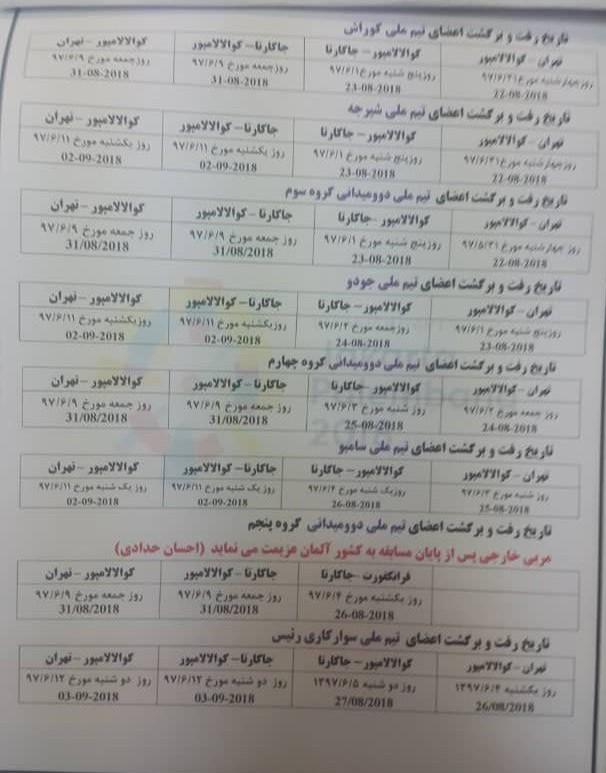 تاریخ رفت و برگشت اعضای تیم ملی کوراش
تهران - کوالالامپور	کوالالامپور - جاکارتا	جاکارتا - کوالالامپور	کوالالامپور - تهران
روز پنج شنبه مورخ ۹۷/۶/۱	روز جمعه مورخ ۹۷/۶/۹	روز جمعه مورخ ۹۷/۶/۹
22-08-2018	23-08-2018	31-08-2018	31-08-2018
تاریخ رفت و برگشت اعضای تیم ملی شیرجه
تهران - کوالالامپور	کوالالامپور - جاکارتا	جاکارتا - کوالالامپور	کوالالامپور - تهران
روز پنج شنبه مورخ ۹۷/۶/۱	روز یکشنبه مورخ ۹۷/۶/۱۱	روز یکشنبه مورخ ۹۷/۶/۱۱
22-08-2018	23-08-2018	02-09-2018	02-09-2018
تاریخ رفت و برگشت اعضای تیم ملی دوومیدانی گروه سوم
تهران - کوالالامپور	کوالالامپور - جاکارتا	جاکارتا - کوالالامپور	کوالالامپور - تهران
روز چهارشنبه مورخ ۹۷/۵/۳۱	روز پنج شنبه مورخ ۹۷/۶/۱	روز جمعه مورخ ۹۷/۶/۹	روز جمعه مورخ ۹۷/۶/۹
22-08-2018	23-08-2018	31/08/2018	31/08/2018
تاریخ رفت و برگشت اعضای تیم ملی جودو
تهران - کوالالامپور	کوالالامپور - جاکارتا	جاکارتا - کوالالامپور	کوالالامپور - تهران
روز پنج شنبه مورخ ۹۷/۶/۱	روز جمعه مورخ ۹۷/۶/۲	روز یکشنبه مورخ ۹۷/۶/۱۱	روز یکشنبه مورخ ۹۷/۶/۱۱
23-08-2018	24-08-2018	02-09-2018	02-09-2018
تاریخ رفت و برگشت اعضای تیم ملی دوومیدانی گروه چهارم
تهران - کوالالامپور	کوالالامپور - جاکارتا	جاکارتا - کوالالامپور	کوالالامپور - تهران
روز جمعه مورخ ۹۷/۶/۲	روز شنبه مورخ ۹۷/۶/۳	روز جمعه مورخ ۹۷/۶/۹	روز جمعه مورخ ۹۷/۶/۹
24-08-2018	25-08-2018	31/08/2018	31/08/2018
تاریخ رفت و برگشت اعضای تیم ملی سامبو
تهران - کوالالامپور	کوالالامپور - جاکارتا	جاکارتا - کوالالامپور	کوالالامپور - تهران
روز شنبه مورخ ۹۷/۶/۳	روز یک شنبه مورخ ۹۷/۶/۴	روز یک شنبه مورخ ۹۷/۶/۱۱	روز یک شنبه مورخ ۹۷/۶/۱۱
25-08-2018	26-08-2018	02-09-2018	02-09-2018
تاریخ رفت و برگشت اعضای تیم ملی دوومیدانی گروه پنجم
مربی خارجی پس از پایان مسابقه به کشور آلمان عزیمت می نماید (احسان حدادی)
فرانکفورت - جاکارتا	جاکارتا - کوالالامپور	کوالالامپور - تهران
روز یکشنبه مورخ ۹۷/۶/۴	روز جمعه مورخ ۹۷/۶/۹	روز جمعه مورخ ۹۷/۶/۹
26-08-2018	31/08/2018	31/08/2018
تاریخ رفت و برگشت اعضای تیم ملی سوارکاری رئیس
تهران - کوالالامپور	کوالالامپور - جاکارتا	جاکارتا - کوالالامپور	کوالالامپور - تهران
روز یکشنبه ۱۳۹۷/۶/۴	روز دو شنبه ۱۳۹۷/۶/۵	روز دو شنبه مورخ ۹۷/۶/۱۲	روز دو شنبه مورخ ۹۷/۶/۱۲
26/08/2018	27/08/2018	03-09-2018	03-09-2018